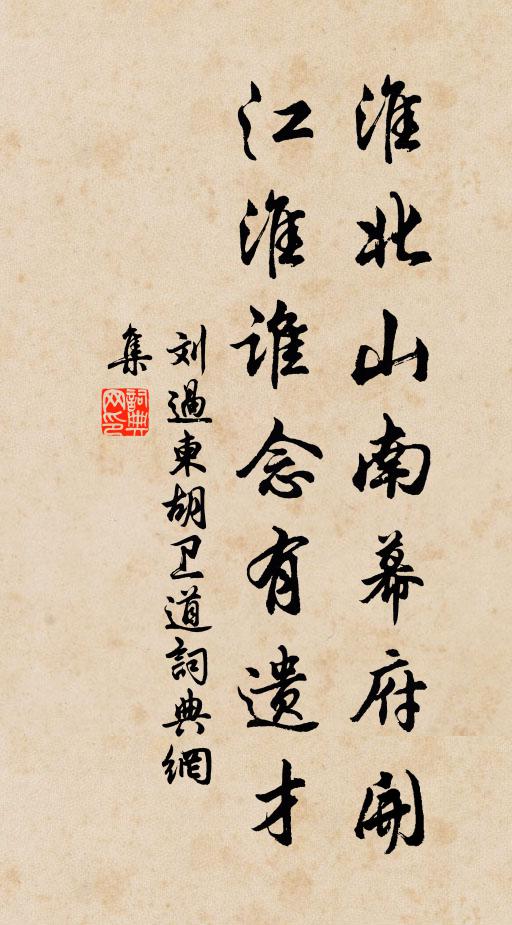 淮北山南幕府開
江淮誰念有遗才
刘過東胡卫道詞典網
集
詞典網印